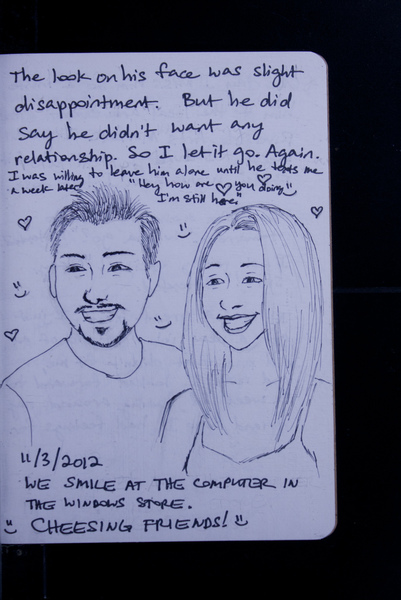 The look on his face was slight
disappointment. But he did
say he didn't want any
relationship. So I let it go. Again.
I was willing to leave him alone until he texts me
a week later "Hey how are you doing
I'm still here."
11/3/2012
WE SMILE AT THE COMPUTER IN
THE WINDOWS STORE.
CHEESING FRIENDS!